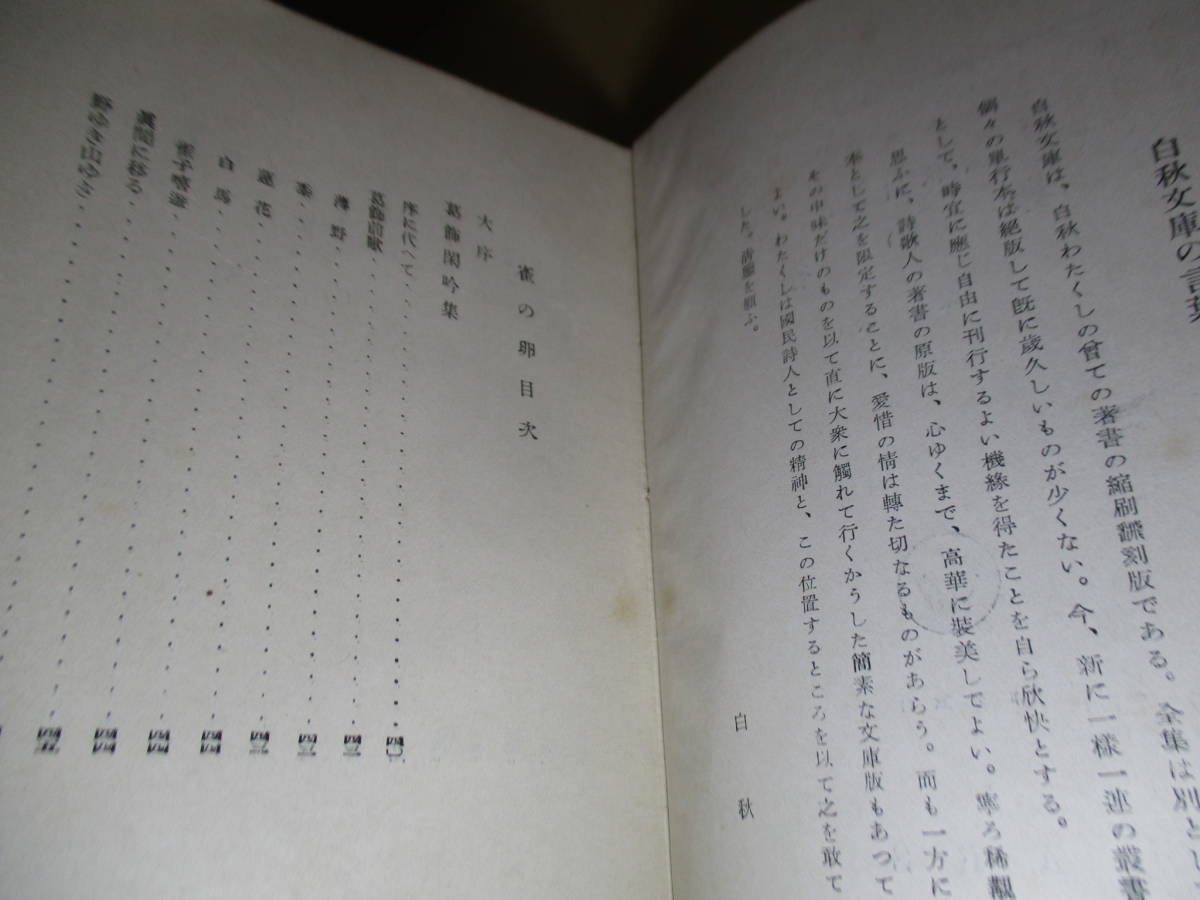 白秋文庫の言葉
白秋文庫は、白秋わたくしの曾ての著書の縮刷飜刻版である。全集は別とし
個々の單行本は絕版して既に歲久しいものが少くない。今、新に一樣一連の叢書
として、時宜に應じ自由に刊行するよい機緣を得たことを自ら欣快とする。
思ふに、詩歌人の著書の原版は、心ゆくまで、高華に裝美しでよい。寧ろ稀覯
本として之を限定することに、愛惜の情は轉た切なるものがあらう。而も一方に
その中味だけのものを以て直に大衆に觸れて行くかうした簡素な文庫版もあつて
よい。わたくしは國民詩人としての精神と、この位置するところを以て之を敢て
した。淸鑒を願ふ。
白秋
雀の卵目次
大序
葛飾閑吟集
序に代へて
葛飾前賦
薄野
黍
蓮花
白馬
雀子嬉遊
眞間に移る
野ゆき山ゆき